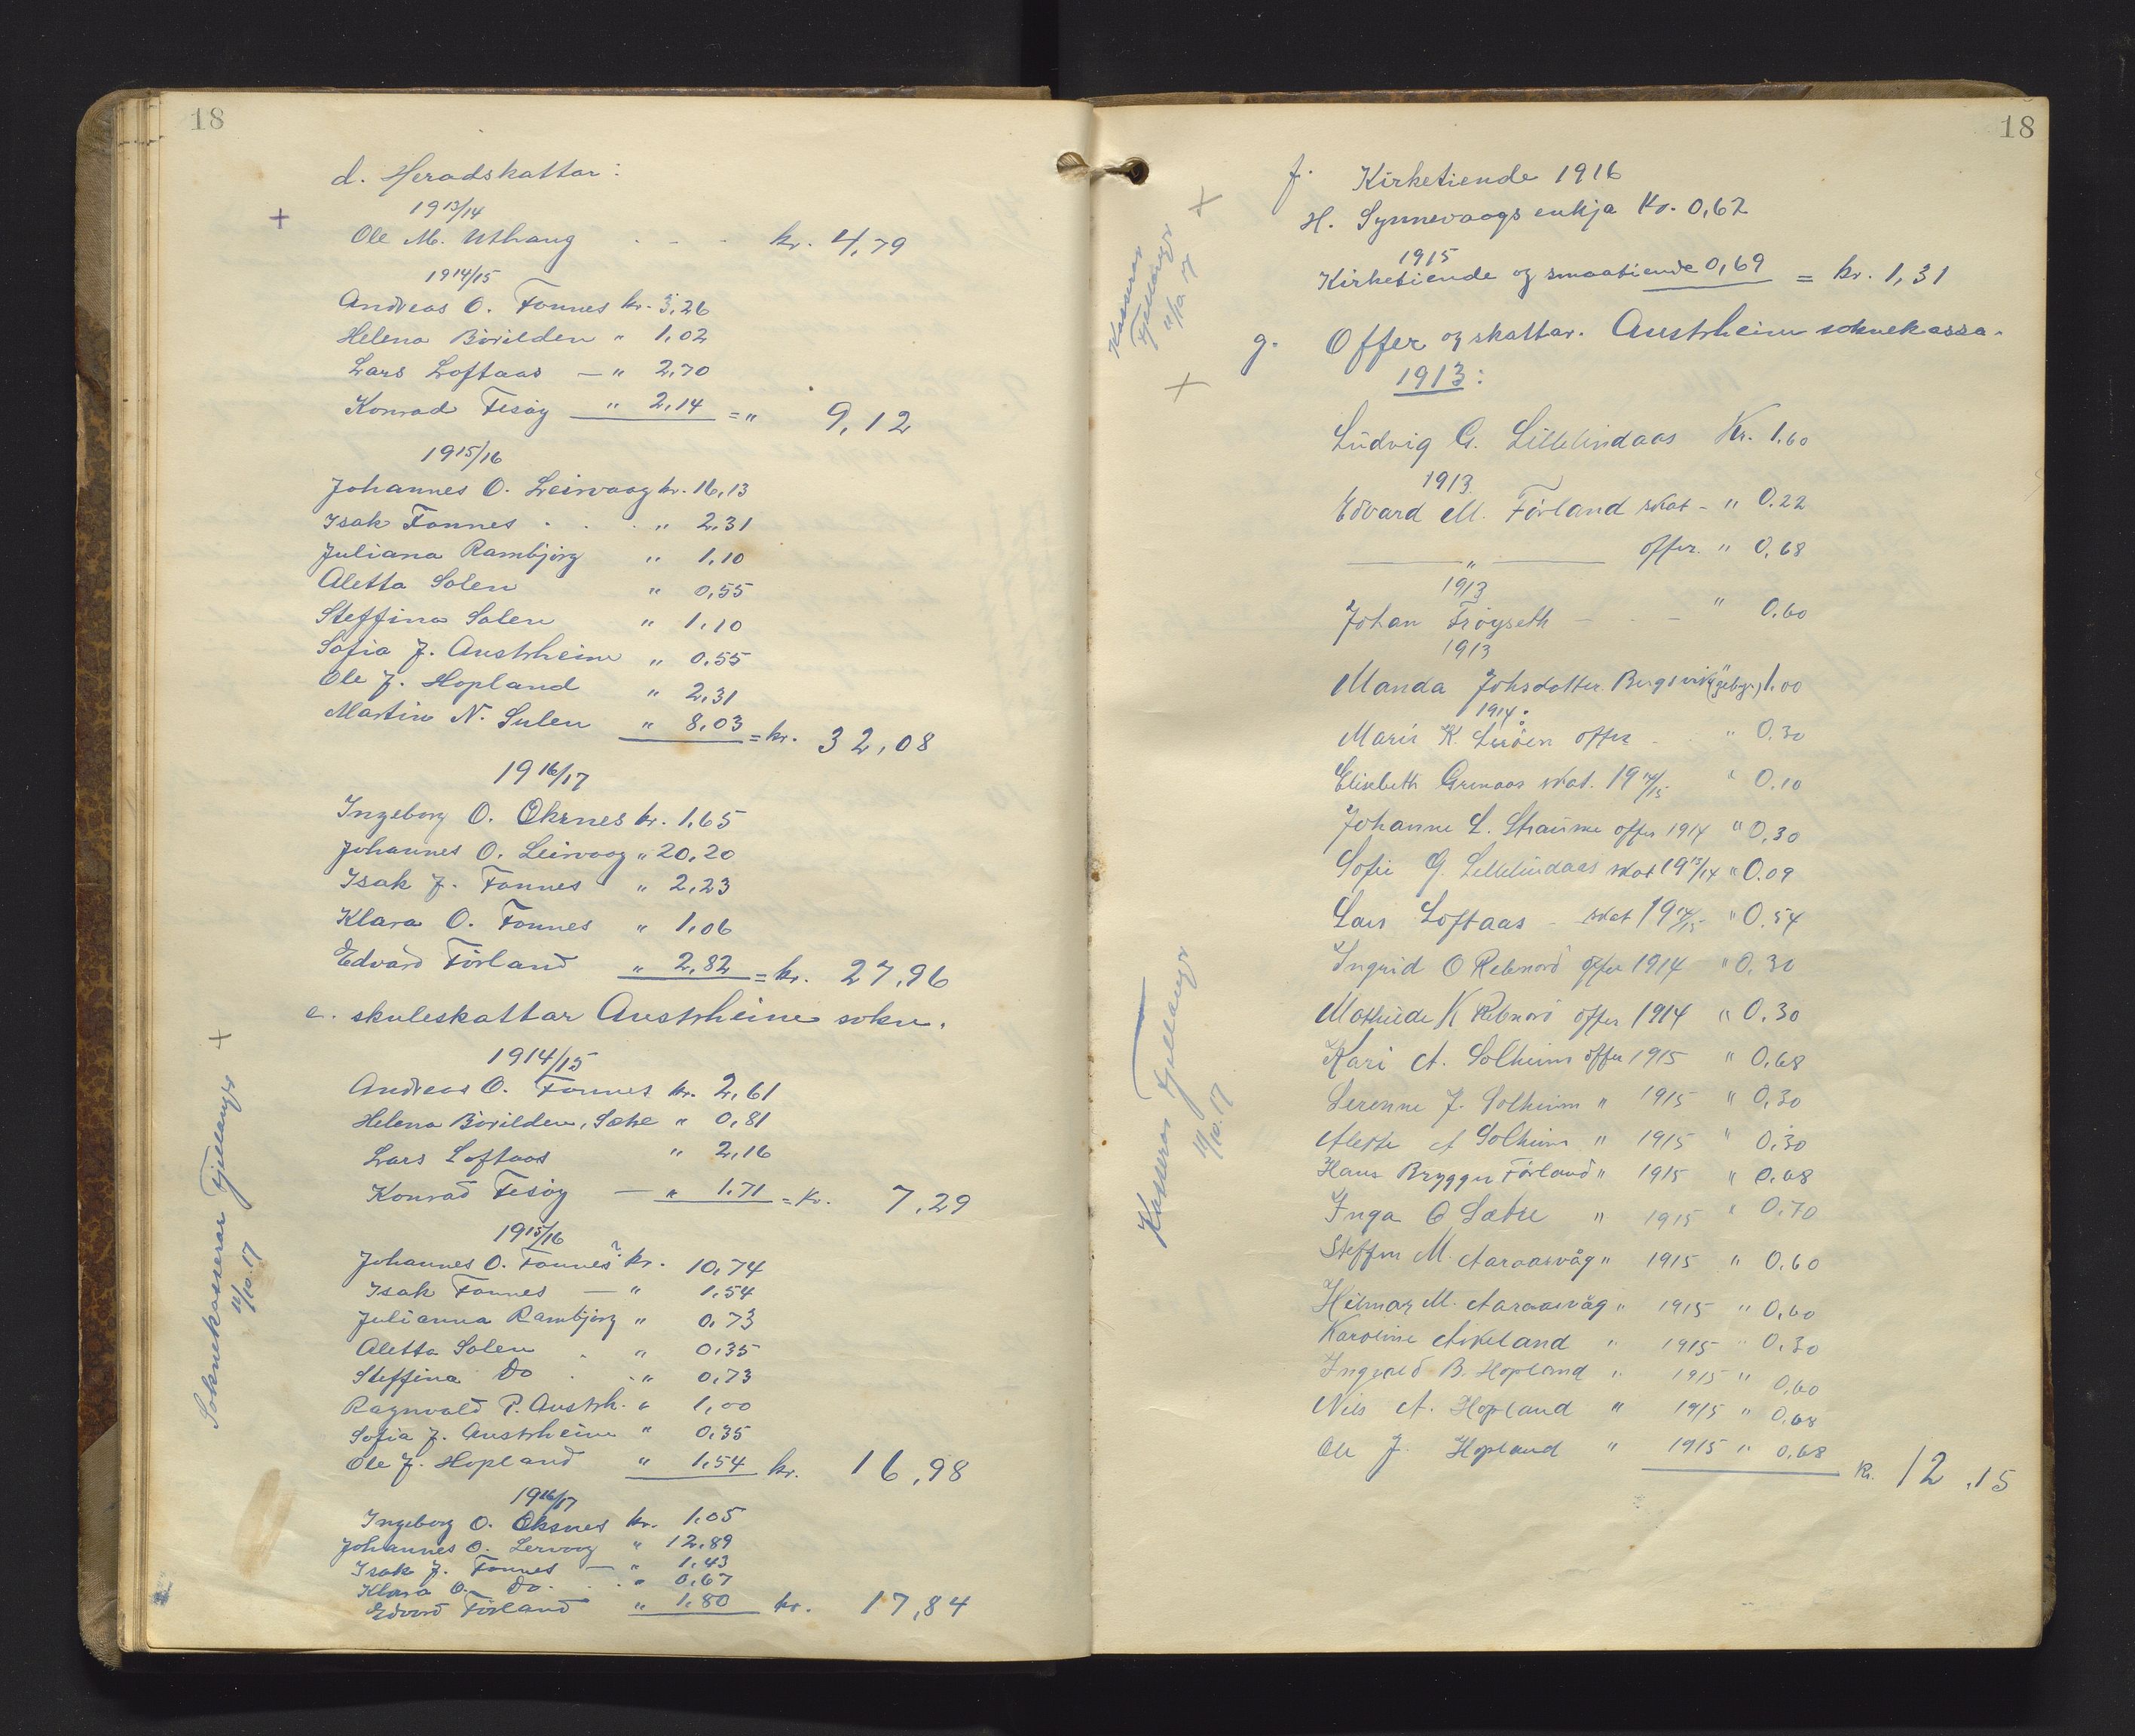 18
d. Heradskattar:
+
1913/14
Ole M. Uthaug . - - kr. 4,79
1914/15
Andreas O. Fonnes kr. 3,26
Helena Börilden " 1,02
Lars Loftaas — " 2,70
Konrad Fesöy " 2,14 = " 9,12
1915/16
Johannes O. Leirvaag kr. 16,13
Isak Fonnes . . . " 2,31
Juliana Rambjörg " 1,10
Aletta Solen " 0,55
Steffina Solen " 1,10
Sofia J. Austrheim " 0,55
Ole J. Hopland " 2,31
Martin N. Sulen " 8,03 = kr. 32,08
1916/17
Ingeborg O. Oksnes kr. 1,65
Johannes O. Leirvaag " 20,20
Isak J. Fonnes " 2,23
Klara O. Fonnes " 1,06
Edvard Förland " 2,82 = kr. 27,96
e. skuleskattar Austrheim sokn.
1914/15
Andreas O. Fonnes kr. 2,61
Helena Börilden, Sætre " 0,81
Lars Loftaas " 2,16
Konrad Fesöy — " 1.71 = kr. 7,29
1915/16
Johannes O. Fonnes? kr. 10,74
Isak Fonnes — " 1,54
Julianna Rambjörg " 0,73
Aletta Solen . " 0,35
Steffina Do . . " 0,73
Ragnvald P. Austrh. " 1,00
Sofia J. Austrheim " 0,35
Ole J. Hopland " 1,54 kr. 16,98
1916/17
Ingeborg O. Oksnes kr. 1,05
Johannes O. Lervaag " 12,89
Isak J. Fonnes — " 1,43
Klara O. Do. . . " 0,67
Edvard Förland " 1,80 kr. 17,84
Soknekasserar Fjellanger +
11/10.17
18
f. Kirketiende 1916
H. Synnevaags enkja Kr. 0,62
1915
Kirketiende og smaatiende 0,69 = kr. 1,31
Kasserar
Fjellanger +
11/10.17
g. Offer og skattar. Austrheim soknekassa.
+
1913:
Ludvig G. Lillelindaas Kr. 1.60
1913
Edvard M. Förland skat - " 0.22
— " — offer. " 0,68
1913
Johan Fröyseth - . - " 0.60
1913
Manda Johsdotter Bergsvik (gebyr) " 1.00
1914:
Maria K. offer - " 0.30
Elisabeth Grenaas skat. 1914/15 " 0.10
Johanne L. Straume offer 1914 " 0,30
Sofie G. Lillelindaas skat 1913/14 " 0.09
Lars Loftaas - skat 1914/15 - " 0.54
Ingrid O Rebnord offer 1914 " 0,30
Mathilde K Rebnord offer 1914 " 0.30
Kari A. Solheim offer 1915 " 0,68
Serenne J. Solheim " 1915 " 0,30
Aletta A Solheim " 1915 " 0,30
Hans Brygger Förland " 1915 " 0.68
Inga O Sætre " 1915 " 0.70
Steffen M. Aaraasvåg " 1915 " 0,60
Hilmar M. Aaraasvåg " 1915 " 0,60
Karoline Askeland " 1915 " 0.30
Ingvald B. Hopland " 1915 " 0,60
Nils A. Hopland " 1915 " 0,68
Ole J. Hopland " 1915 " 0,68 kr. 12.15
Kasserar Fjellanger
11/10.17